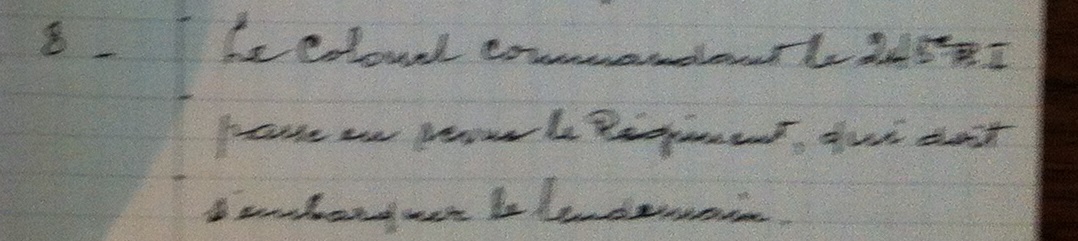 8 - Le Colonel commandant le 245e R I
passe en revue le Régiment, qui doit
s'embarquer le lendemain.